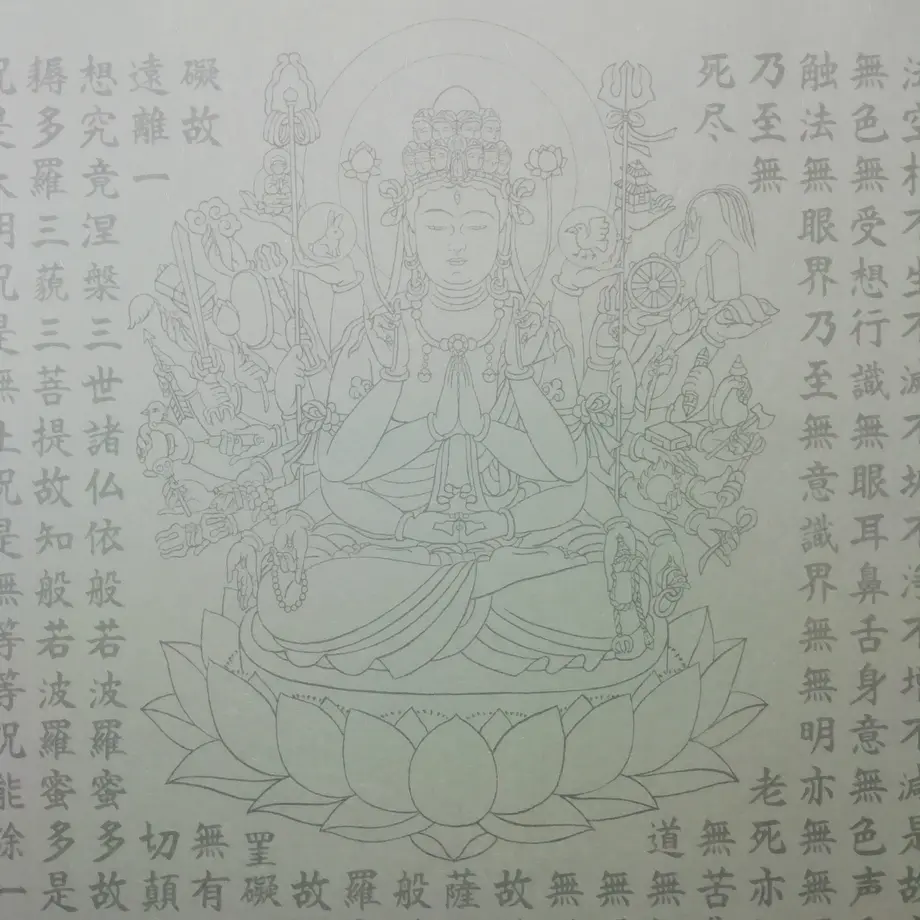 法空相不生不滅不垢不浄不増不減是故
無色無受想行識無眼耳鼻舌身意無色声
触法無眼界乃至無意識界無無明亦無無
乃至無
老死亦
死尽
無苦
道無
無
無
故
薩
般
羅
故
罣礙
礙故
無有
遠離一
切顛
想究竟涅槃三世諸仏依般若波羅蜜多故
耨多羅三藐三菩提故知般若波羅蜜多是
呪是大明呪是無上呪是無等等呪能除一